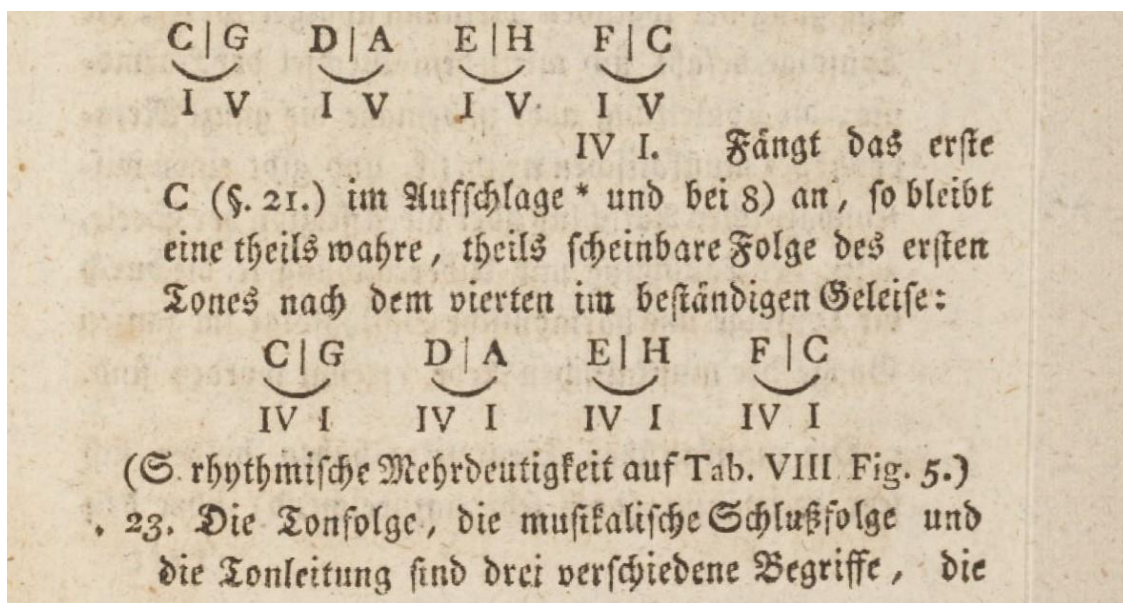 C | G D | A E | H F | C
I V I V I V I V
IV I. Fängt das erste
C (§. 21.) im Aufschlage * und bei 8) an, so bleibt
eine theils wahre, theils scheinbare Folge des ersten
Tones nach dem vierten im beständigen Geleise:
C | G D | A E | H F | C
IV I IV I IV I IV I
(S. rhythmische Mehrdeutigkeit auf Tab. VIII Fig. 5.)
23. Die Tonfolge, die musikalische Schlußfolge und
die Tonleitung sind drei verschiedene Begriffe, die